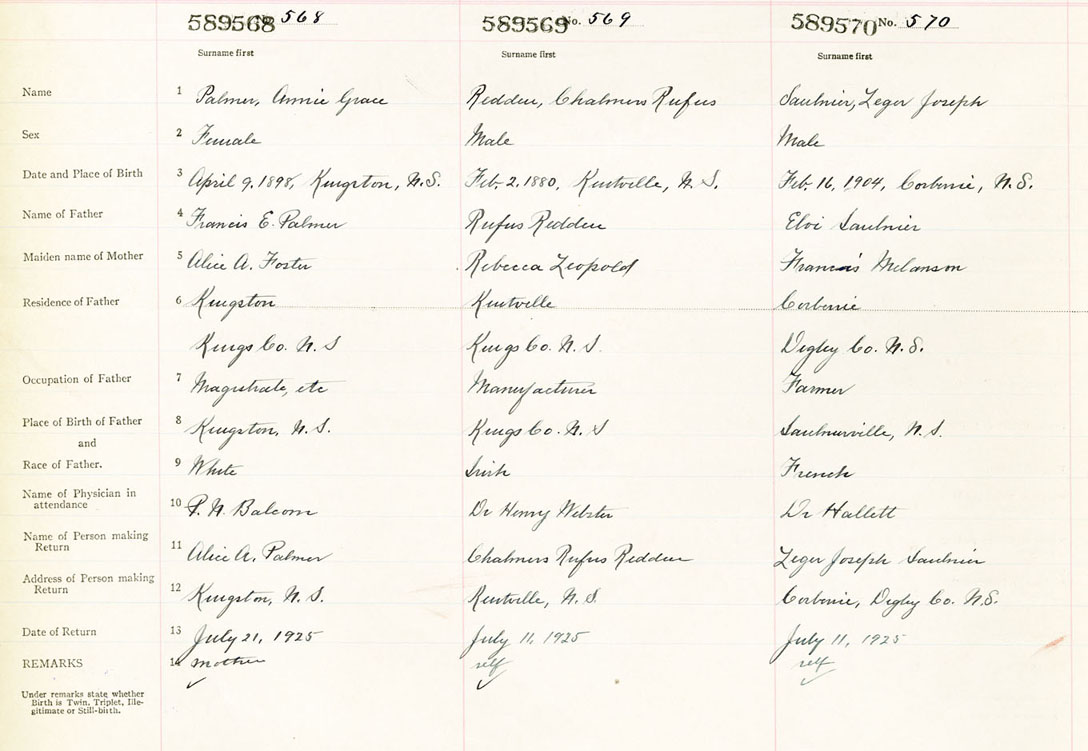 589568 No. 568 589569 No. 569 589570 No. 570
Surname first Surname first Surname first
Name 1 Palmer, Annie Grace Redden, Chalmers Rufus Saulnier, Leger Joseph
Sex 2 Female Male Male
Date and Place of Birth 3 April 9, 1898, Kingston, N.S. Feb. 2, 1880, Kentville, N.S. Feb. 16, 1904, Corberrie, N.S.
Name of Father 4 Francis E. Palmer Rufus Redden Eloi Saulnier
Maiden name of Mother 5 Alice A. Foster Rebecca Leopold Francis Melanson
Residence of Father 6 Kingston Kentville Corberrie
Kings Co. N.S Kings Co. N.S. Digby Co. N.S.
Occupation of Father 7 Magistrate, etc Manufacturer Farmer
Place of Birth of Father 8 Kingston, N.S. Kings Co. N.S Saulnierville, N.S.
and
Race of Father. 9 White Irish French
Name of Physician in
attendance 10 P. N. Balcom Dr Henry Webster Dr Hallett
Name of Person making
Return 11 Alice A. Palmer Chalmers Rufus Redden Leger Joseph Saulnier
Address of Person making
Return 12 Kingston, N.S. Kentville, N.S. Corberrie, Digby Co. N.S.
Date of Return 13 July 21, 1925 July 11, 1925 July 11, 1925
REMARKS 14 mother self self
Under remarks state whether
Birth is Twin, Triplet, Ille-
gitimate or Still-birth.